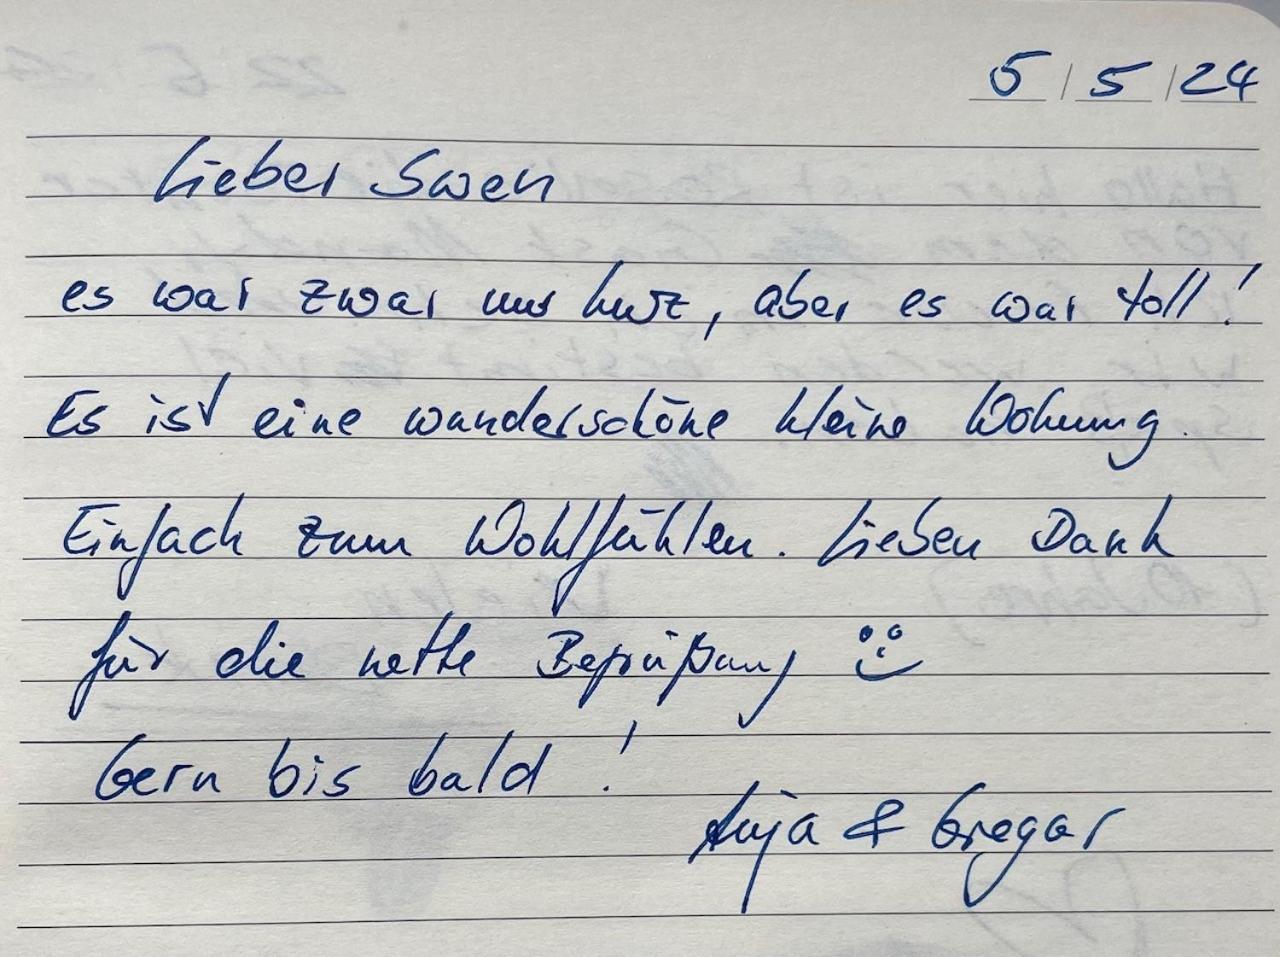 5/5/24
Lieber Swen
es war zwar nur kurz, aber es war toll!
Es ist eine wunderschöne kleine Wohnung.
Einfach zum Wohlfühlen. Lieben Dank
für die nette Begrüßung
Gern bis bald!
Anja & Gregor